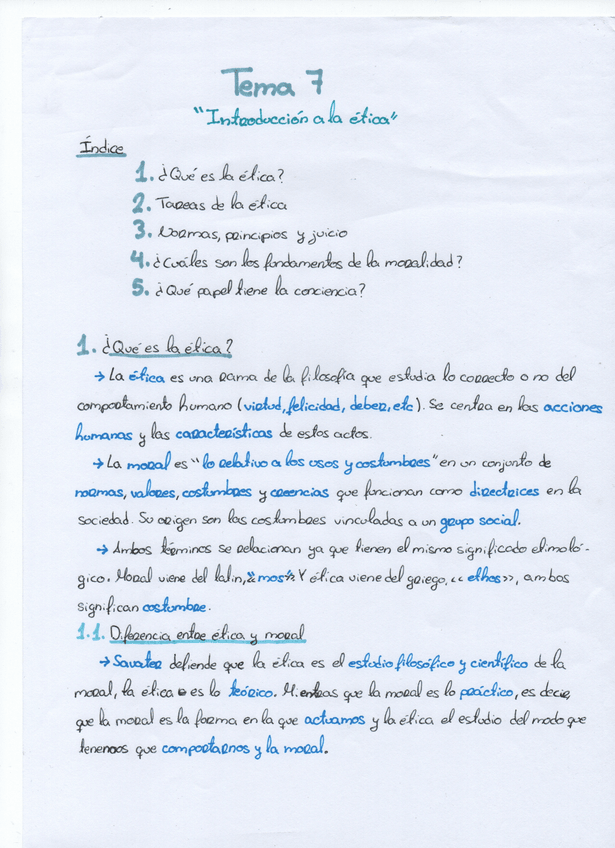 Tema 7
"Introducción a la ética"
Índice
1. ¿Qué es la ética?
2. Tareas de la ética
3. Normas, principios y juicio
4. ¿Cuáles son los fundamentos de la moralidad?
5. ¿Qué papel tiene la conciencia?
1. ¿Qué es la ética?
→ La ética es una rama de la filosofía que estudia lo correcto o no del
comportamiento humano (virtud, felicidad, deber, etc). Se centra en las acciones
humanas y las características de estos actos.
→ La moral es "lo relativo a los usos y costumbres" en un conjunto de
normas, valores, costumbres y creencias que funcionan como directrices en la
sociedad. Su origen son las costumbres vinculadas a un grupo social.
→ Ambos términos se relacionan ya que tienen el mismo significado etimoló-
gico. Moral viene del latín, «mos». Y ética viene del griego, «ethos», ambos
significan costumbre.
1.1. Diferencia entre ética y moral
→ Savater defiende que la ética es el estudio filosófico y científico de la
moral, la ética es lo teórico. Mientras que la moral es lo práctico, es decir,
que la moral es la forma en la que actuamos y la ética el estudio del modo que
tenemos que comportarnos y la moral.